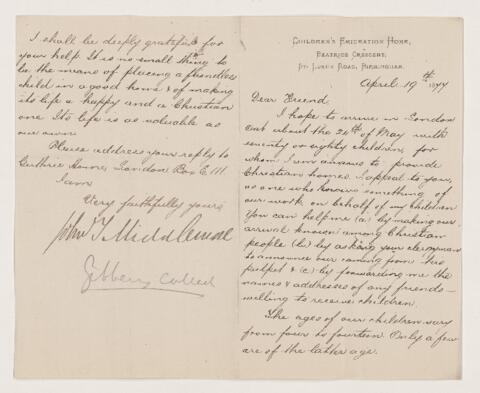 Children's Emigration Home,
Beatrice Crescent,
St. Luke's Road, Birmingham.
April 19th 1877
Dear Friend
I hope to arrive in London
Ont about the 24th of May with
seventy or eighty children, for
whom I am anxious to provide
Christian homes. I appeal to you,
as one who knows something of
our work on behalf of my children
You can help me (a) by making our
arrival known among Christian
people (b) by asking your clergyman
to announce our coming from his
pulpit & (c) by forwarding me the
names & addresses of any friends
willing to receive children.
The ages of our children vary
from four to fourteen. Only a few
are of the latter age.
I shall be deeply grateful for
your help. It is no small thing to
be the means of placing a friendless
child in a good home & of making
its life a happy and a Christian
one. Its life is as valuable as
our own.
Please address your reply to
Guthrie Home, London Box E 111.
I am
Very faithfully yours
John T Middlemore